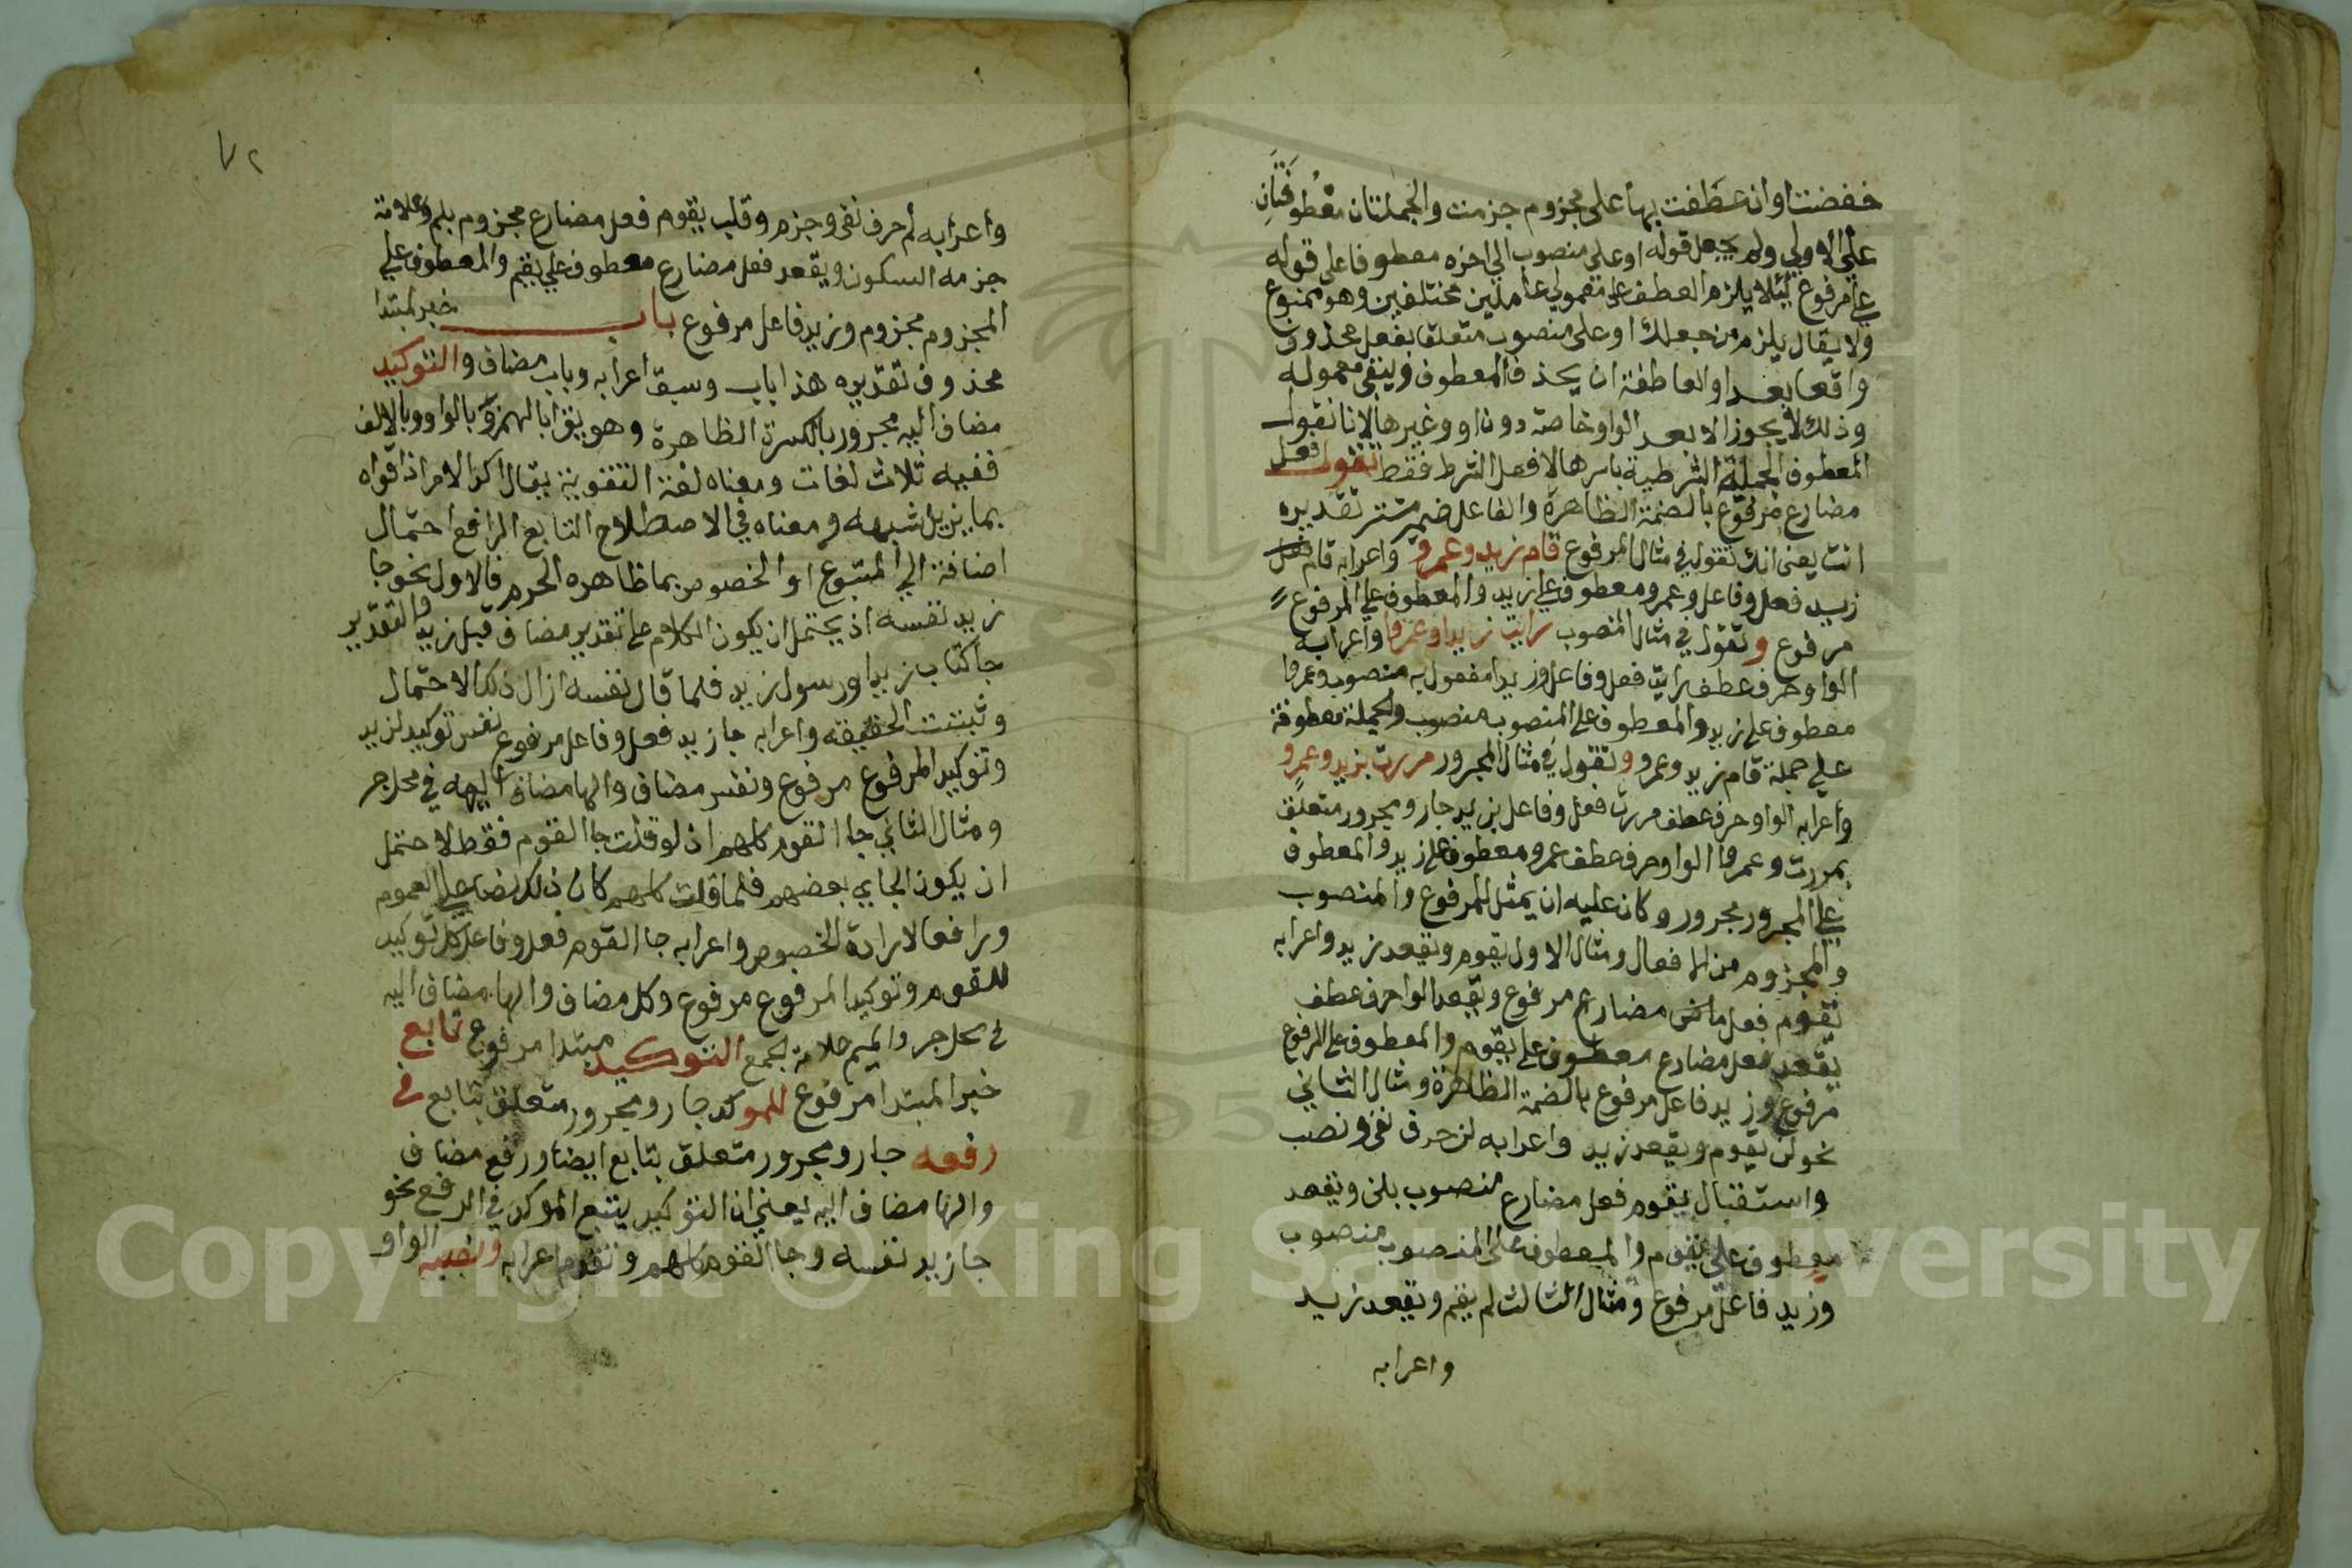 خفضت او ان عطفت بها على مجزوم جزمت والجملتان معطوفتان
على الاولى ولم يجعل قوله او على منصوب الى اخره معطوفا على قوله
على مرفوع ليلا يلزم العطف على معمولي عاملين مختلفين وهو ممنوع
ولا يقال يلزم من جعلك او على منصوب متعلقا بفعل محذوف
واقعا بعد او العاطفة ان يحذف المعطوف ويبقى معموله
وذلك لا يجوز الا بعد الواو خاصة دون او وغيرها لانا نقول
المعطوف الجملة الشرطية باسرها لا فعل الشرط فقط تقول فعل
مضارع مرفوع بالضمة الظاهرة والفاعل ضمير مستتر تقديره
انت يعنى انك تقول في مثال المرفوع قام زيد وعمرو واعرابه قام فعل
زيد فعل وفاعل وعمرو معطوف على زيد والمعطوف على المرفوع
مرفوع وتقول في مثال المنصوب رايت زيدا وعمرا واعرابه
الواو حرف عطف رايت فعل وفاعل وزيدا مفعول به منصوب وعمرا
معطوف على زيد والمعطوف على المنصوب منصوب والجملة معطوفة
على جملة قام زيد وعمرو وتقول في مثال المجرور مررت بزيد وعمرو
واعرابه الواو حرف عطف مررت فعل وفاعل بزيد جار ومجرور متعلق
بمررت وعمرو الواو حرف عطف عمرو معطوف على زيد والمعطوف
على المجرور مجرور وكان عليه ان يمثل للمرفوع والمنصوب
والمجزوم من الافعال ومثال الاول يقوم ويقعد زيد واعرابه
يقوم فعل ماض مضارع مرفوع ويقعد الواو حرف عطف
يقعد فعل مضارع معطوف على يقوم والمعطوف على المرفوع
مرفوع وزيد فاعل مرفوع بالضمة الظاهرة ومثال الثاني
نحو لن يقوم ويقعد زيد واعرابه لن حرف نفى ونصب
واستقبال يقوم فعل مضارع منصوب بلن ويقعد
معطوف على يقوم والمعطوف على المنصوب منصوب
وزيد فاعل مرفوع ومثال الثالث لم يقم ويقعد زيد
واعرابه
٧٢
واعرابه لم حرف نفى وجزم وقلب يقوم فعل مضارع مجزوم بلم وعلامة
جزمه السكون ويقعد فعل مضارع معطوف على يقم والمعطوف على
المجزوم مجزوم وزيد فاعل مرفوع باب خبر لمبتدا
محذوف تقديره هذا باب وسبق اعرابه وباب مضاف والتوكيد
مضاف اليه مجرور بالكسرة الظاهرة وهو يقرا بالهمزة وبالواو وبالالف
ففيه ثلاث لغات ومعناه لغة التقوية يقال اكد الامر اذا قواه
بما يزيل شبهه ومعناه في الاصطلاح التابع الرافع احتمال
اضافة الى المتبوع او الخصوص بما ظاهره فالاول نحو جا
زيد نفسه اذ يحتمل ان يكون الكلام على تقدير مضاف قبل زيد والتقدير
جا كتاب زيد او رسول زيد فلما قال نفسه ازال ذلك الاحتمال
وثبتت الحقيقة واعرابه جا زيد فعل وفاعل مرفوع نفس توكيد لزيد
وتوكيد المرفوع مرفوع ونفس مضاف والها مضاف اليه في محل جر
ومثال الثاني جا القوم كلهم اذ لو قلت جا القوم فقط لاحتمل
ان يكون الجاى بعضهم فلما قلت كلهم كان ذلك نصا على العموم
ورافعا لارادة الخصوص واعرابه جا القوم فعل وفاعل كل توكيد
للقوم وتوكيد المرفوع مرفوع وكل مضاف والها مضاف اليه
في محل جر والميم علامة الجمع التوكيد مبتدا مرفوع تابع
خبر المبتدا مرفوع للموكد جار ومجرور متعلق بتابع في
رفعه جار ومجرور متعلق بتابع ايضا ورفع مضاف
والها مضاف اليه يعنى ان التوكيد يتبع الموكد في الرفع نحو
جا زيد نفسه وجا القوم كلهم وتقدم اعرابه ونصبه الواو
Copyright © King Saud University
195